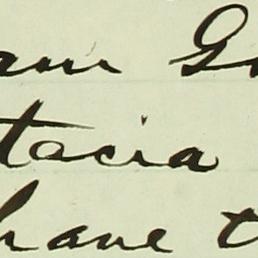 am G
tacia
have t